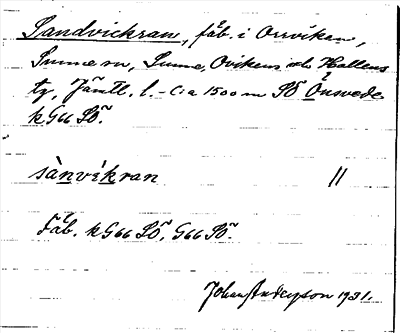 Sandvickran, fäb. i Orrviken,
Sunne sn, Sunne, Ovikens o. Hallens
tg, Jämtl. l. – C:a 1500 m SÖ Önsvede
k G66 SÖ.
sànvíkran //
Fäb. k G66 SÖ, G66 SÖ.
Johan Anderson 1931.